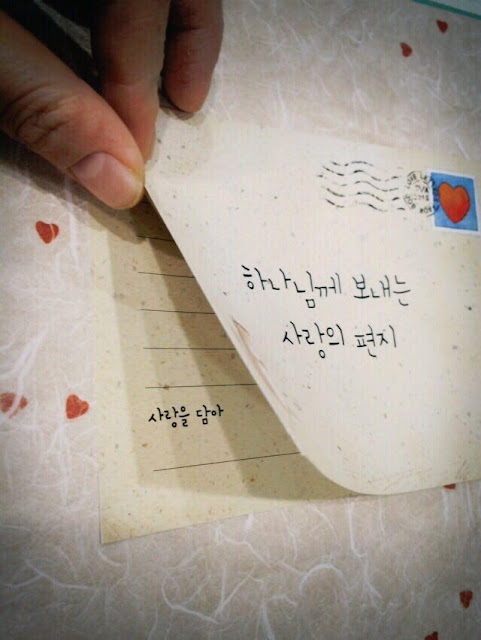 하나님께 보내는
사랑의 편지
사랑을 담아